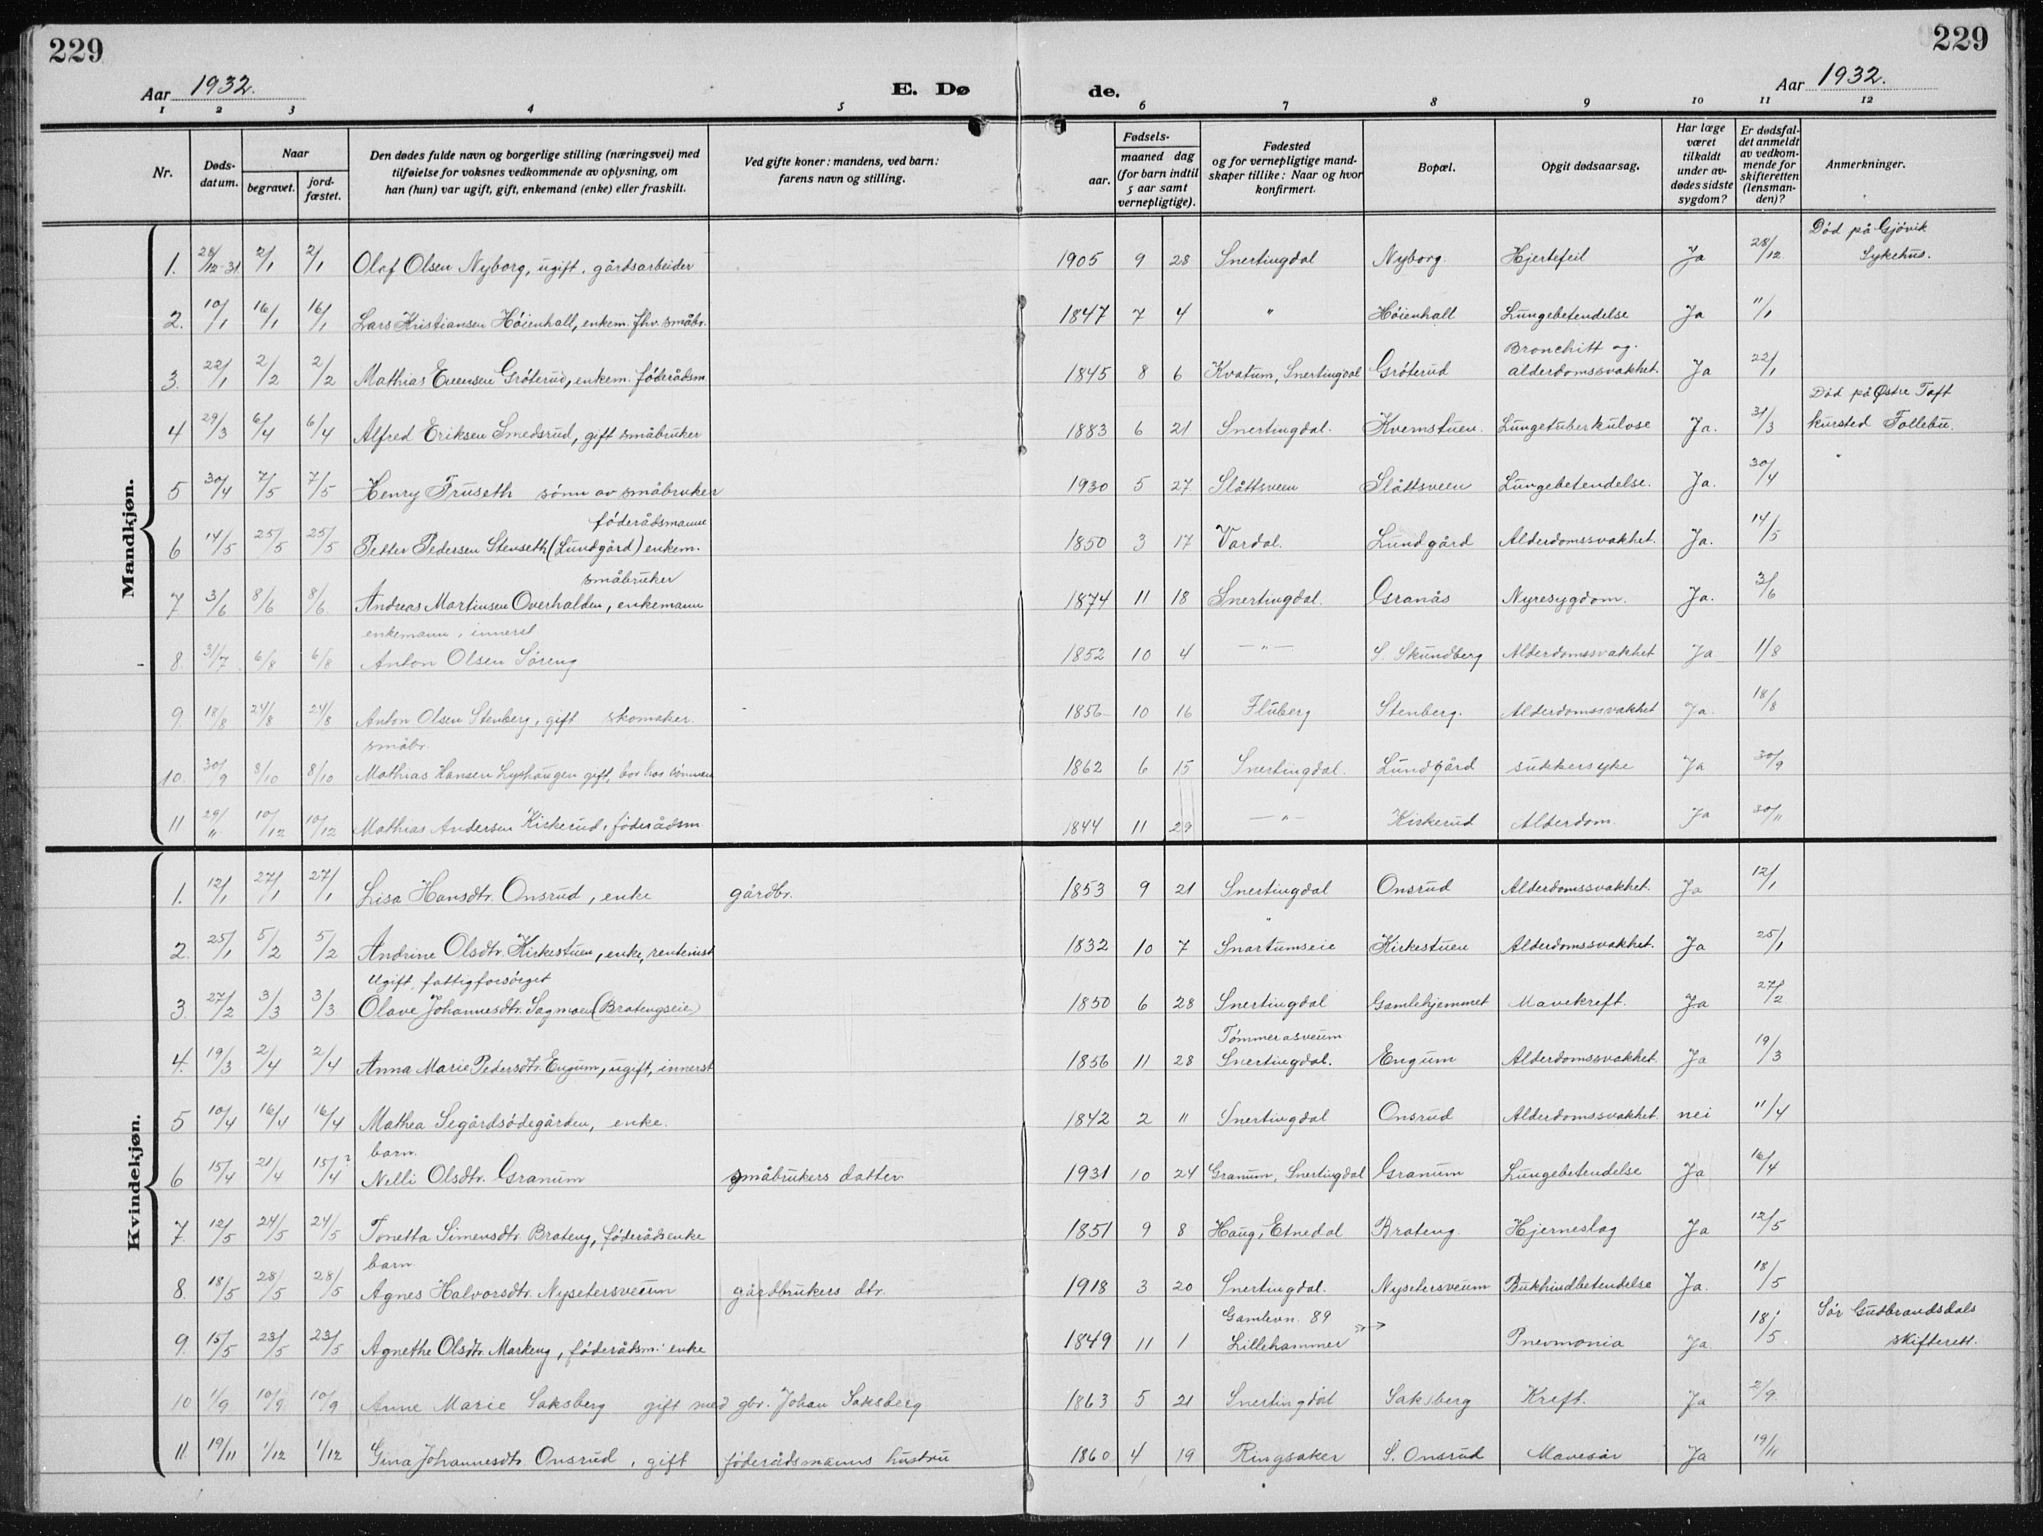 229
229
Aar 1932.
E. Dø de.
Aar 1932.
1 2 3 4 5 6 7 8 9 10 11 12
Nr.
Døds-datum.
Naar
begravet.
jord-fæstet.
Den dødes fulde navn og borgerlige stilling (næringsvei) med tilføielse for voksnes vedkommende av oplysning, om han (hun) var ugift, gift, enkemand (enke) eller fraskilt.
Ved gifte koner: mandens, ved barn: farens navn og stilling.
Fødsels-
aar.
maaned dag (for barn indtil 5 aar samt vernepligtige).
Fødested og for vernepligtige mand-skaper tillike: Naar og hvor konfirmert.
Bopæl.
Opgit dødsaarsag.
Har læge været tilkaldt under av-dødes sidste sygdom?
Er dødsfal-det anmeldt av vedkom-mende for skifteretten (lensman-den)?
Anmerkninger.
Mandkjøn.
1. 28/12-31 2/1 2/1 Olaf Olsen Nyborg, ugift. gårdsarbeider 1905 9 28 Snertingdal Nyborg. Hjertefeil Ja 28/12 Död på Gjövik Sykehus.
2. 10/1 16/1 16/1 Lars Kristiansen Höienhall, enkem. fhv. småbr. 1847 7 4 " Höienhall Lungebetendelse Ja 11/1
3. 22/1 2/2 2/2 Mathias Evensen Gröterud, enkem. föderådsm 1845 8 6 Kvatum, Snertingdal Gröterud Bronchitt og alderdomssvakhet. Ja 22/1
4 29/3 6/4 6/4 Alfred Eriksen Smedsrud, gift småbruker 1883 6 21 Snertingdal. Kvernstuen. Lungetuberkulose Ja. 31/3 Död på Østre Toft kursted Follebu.
5 30/4 7/5 7/5 Henry Truseth sönn av småbruker 1930 5 27 Slåttsveen Slåttsveen Lungebetendelse. Ja. 30/4
6 14/5 25/5 25/5 Petter Pedersen Stenseth (Lundgård) enkem. föderådsmann 1850 3 17 Vardal. Lundgård Alderdomssvakhet. Ja. 14/5
7 3/6 8/6 8/6 Andreas Martinsen Overhalden, enkemann småbruker 1874 11 18 Snertingdal. Granås Nyresygdom. Ja. 3/6
8. 31/7 6/8 6/8 enkemann, innerst Anton Olsen Söreng 1852 10 4 —"— S. Skundberg Alderdomssvakhet Ja 1/8
9 18/8 24/8 24/8 Anton Olsen Stenberg, gift skomaker. 1856 10 16 Fluberg Stenberg. Alderdomssvakhet Ja. 18/8
10. 30/9 8/10 8/10 småbr. Mathias Hansen Lyshaugen gift, bor hos sönnen 1862 6 15 Snertingdal. Lundgård sukkersyke Ja 30/9
11 29/11 10/12 10/12 Mathias Andersen Kiskerud, föderådsm 1844 11 29 —"— Kiskerud Alderdom. Ja 30/11
Kvindekjøn.
1. 12/1 27/1 27/1 Lisa Hansdtr. Onsrud, enke gårdbr. 1853 9 21 Snertingdal Onsrud Alderdomssvakhet. Ja 12/1
2. 25/1 5/2 5/2 Andrine Olsdtr. Kirkestuen, enke, rentenist 1832 10 7 " Snartumseie Kirkestuen Alderdomssvakhet. Ja 25/1
3. 27/2 3/3 3/3 Ugift, fattigforsörget Olave Johannesdtr. Sagmoen (Bratengseie) 1850 6 28 Snertingdal Gamlehjemmet Mavekreft. Ja 27/2
4. 19/3 2/4 2/4 Anna Marie Pedersdtr. Engum, ugift, innerst 1856 11 28 Tömmerasveum Snertingdal. Engum Alderdomssvakhet. Ja 19/3
5 10/4 16/4 16/4 Mathea Segårdsödegården, enke. 1842 2 11 Snertingdal Onsrud Alderdomssvakhet. nei 11/4
6 15/4 21/4 15/4? barn. Nelli Olsdtr. Granum småbrukers datter 1931 10 24 Granum, Snertingdal Granum Lungebetendelse Ja 16/4
7. 12/5 24/5 24/5 Tonetta Simensdtr Brateng, föderådsenke 1851 9 8 Haug, Etnedal Brateng. Hjerneslag Ja 12/5
8. 18/5 28/5 28/5 barn. Agnes Halvorsdtr. Nysetersveum gårdbrukers dtr. 1918 3 20 Snertingdal. Nysetersveum Bukhindbetendelse Ja. 18/5
9. 15/5 23/5 23/5 Agnethe Olsdtr. Markeng, föderådsm. enke 1849 11 1 Gamlevn. 89 Lillehammer Pnevmonia Ja 18/5 Sör Gudbrandsdals skifterett.
10 1/9 10/9 10/9 Anne Marie Saksberg gift med gbr. Johan Saksberg 1863 5 21 Snertingdal Saksberg Kreft. Ja 2/9
11 19/11 1/12 1/12 Gina Johannesdtr Onsrud, gift föderådsmanns hustru 1860 4 19 Ringsaker S. Onsrud Mavesår Ja 19/11